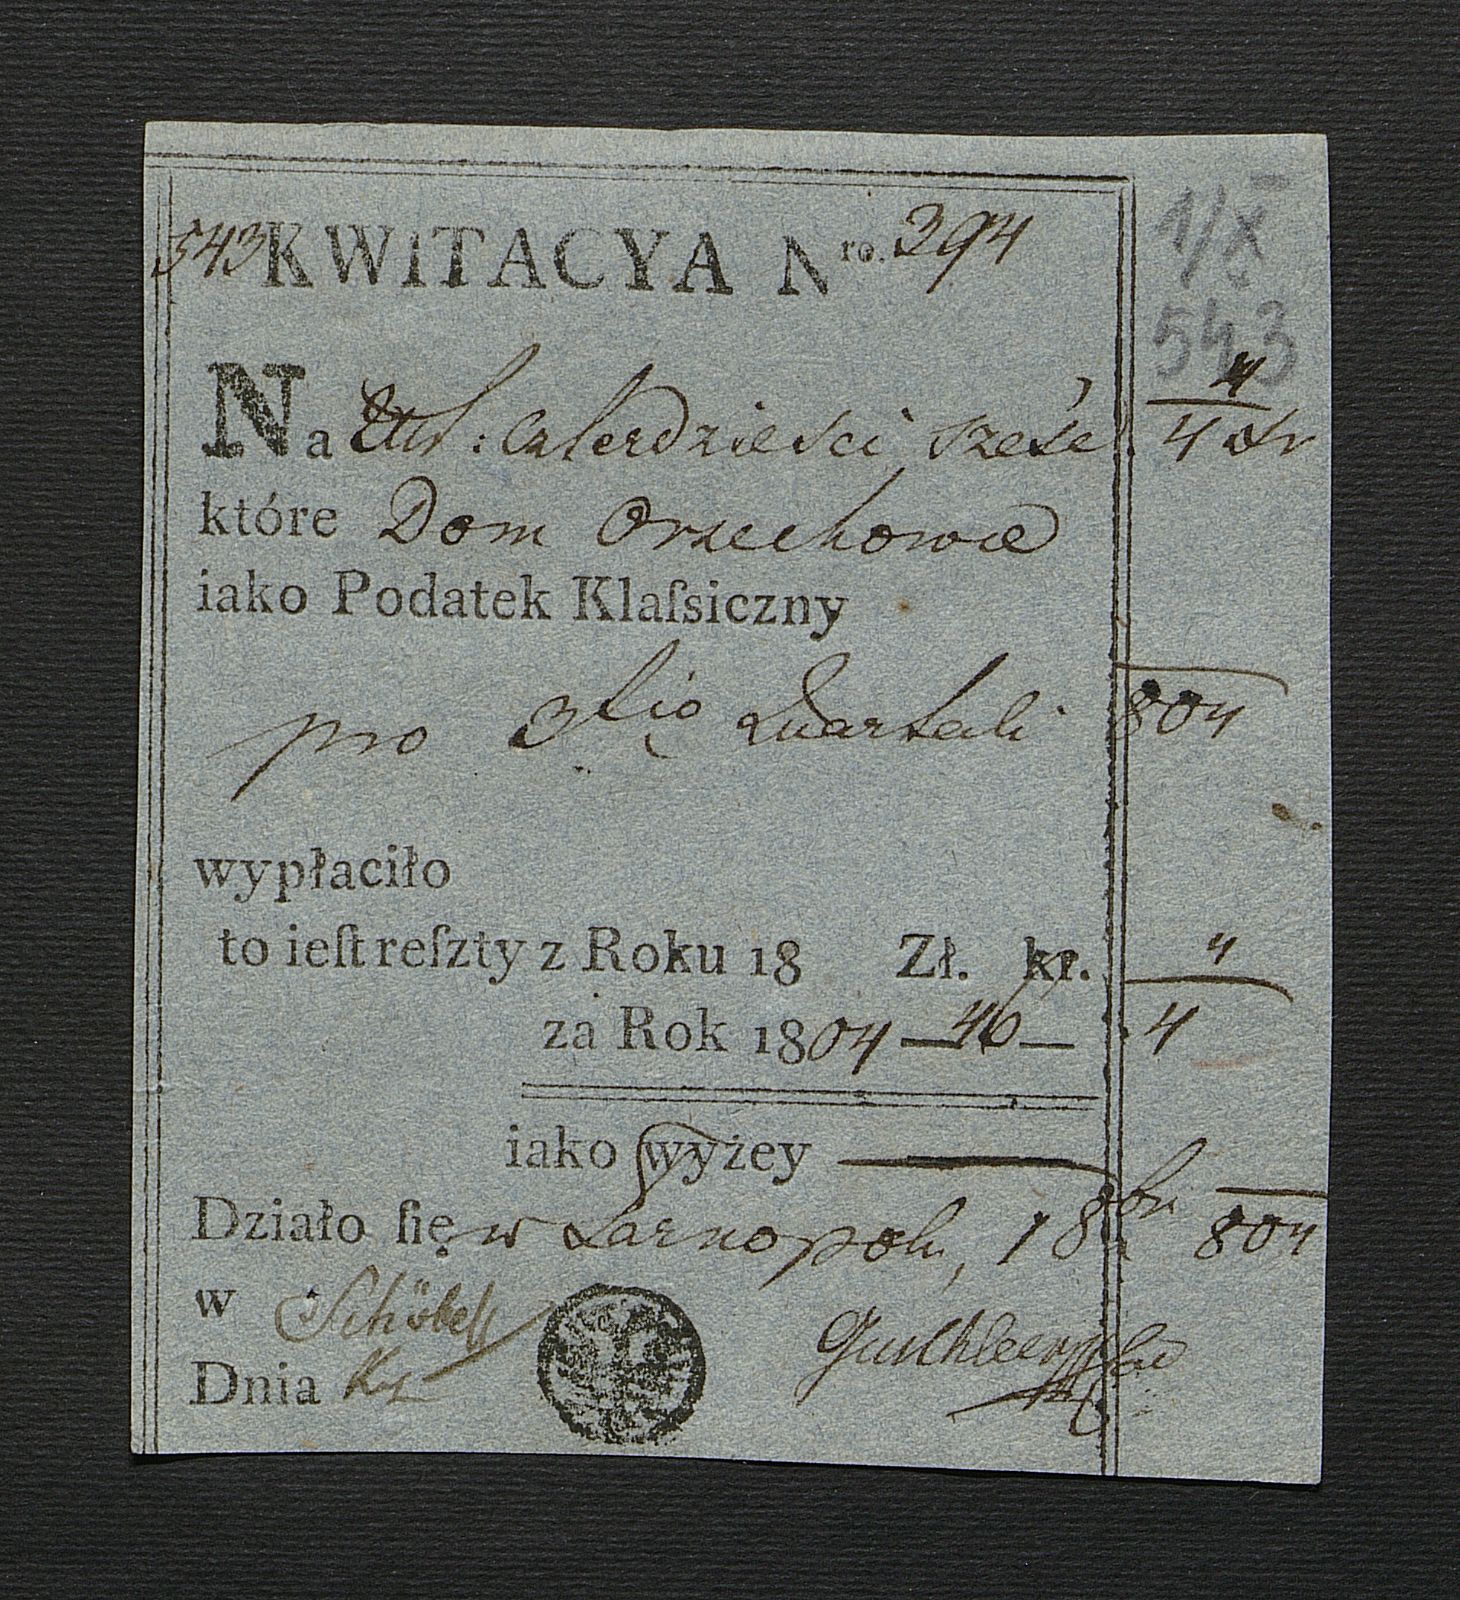 543 KWITACYA Nro. 394
1/X
543
Na : Czterdzieści sześć
4 xr
które Dom Orzechowce
iako Podatek Klaſsiczny
pro 3tio Quartali
804
wypłaciło
to ieſt reſzty z Roku 18 Zł. kr.
za Rok 1804 — 46 —
4
iako wyżey
Działo ſię w Tarnopolu, 18 8bri 804
w Schöbell
Dnia